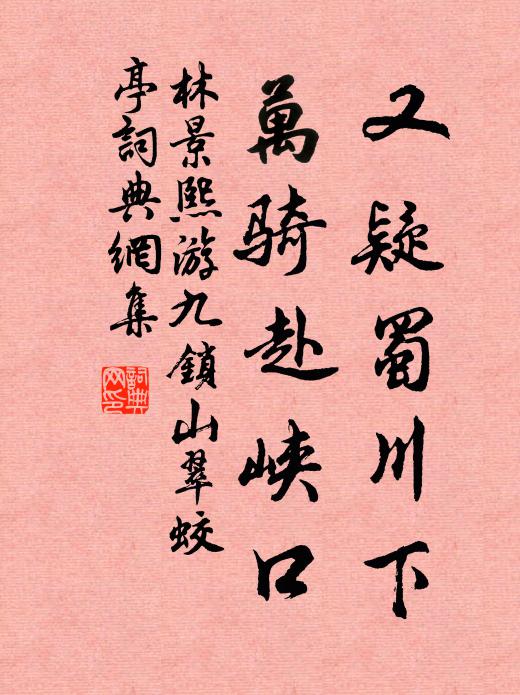 又疑蜀川下
萬騎赴峽口
林景熙游九鎖山翠蛟
亭詞典網集
詞典
网印